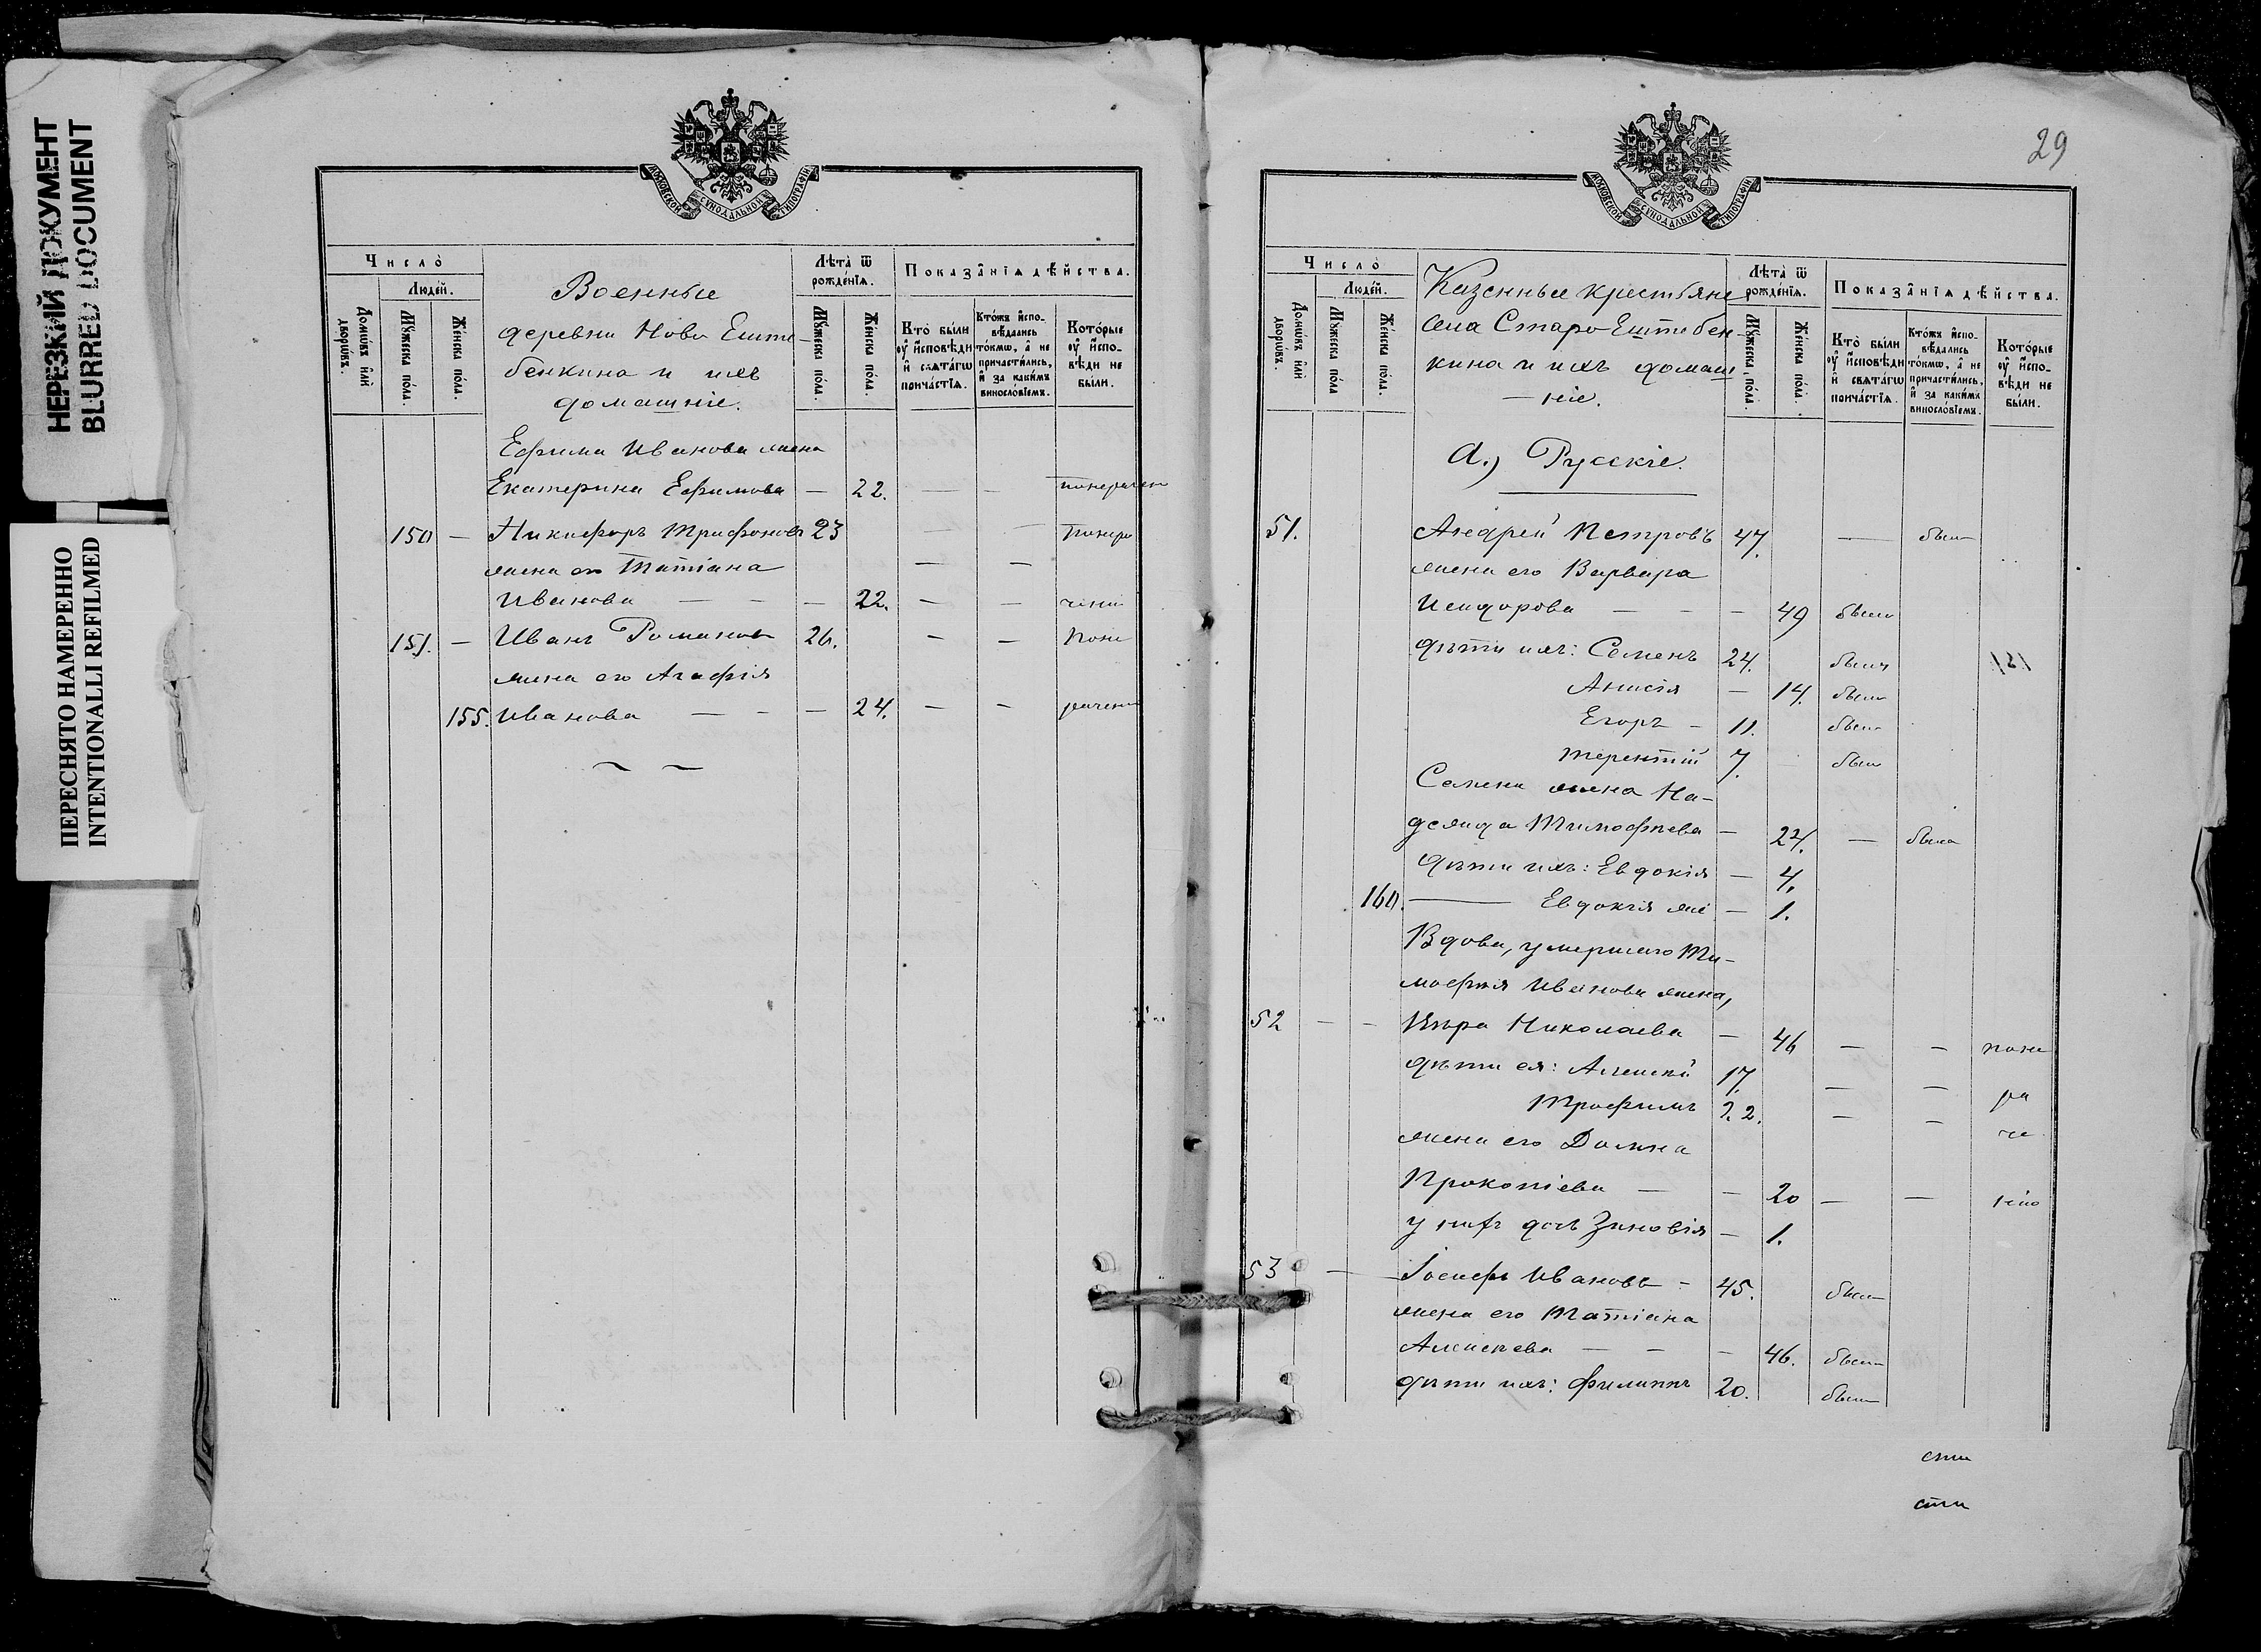 НЕРЕЗКИЙ ДОКУМЕНТ
BLURRED DOCUMENT
ПЕРЕСНЯТО НАМЕРЕННО
INTENTIONALLI REFILMED
МОСКОВСКОЙ СѴНОДАЛЬНОЙ ТИПОГРАФІИ
Число̀
Людей.
Домѡвъ илѝ дворѡвъ.
Мꙋжеска по́ла.
Же́нска по́ла.
Военные
деревни Ново Еште-
бенкина и ихъ
домашніе.
Лѣта̀ ѿ рожде́нїѧ.
Мꙋжеска по́ла.
Же́нска по́ла.
Показа̑нїѧ дѣ́йства.
Кто̀ бы́ли оу҆ и҆сповѣди и҆ свѧта́гѡ прича́стїѧ.
Кто́жъ и҆спо-вѣдались то́кмѡ, а҆ не причасти́лись, и҆ за каки́мъ винословїемъ.
Кото́рые оу҆ и҆спо-вѣди не бы́ли.
Ефима Иванова жена
Екатерина Ефимова — 22. — — понерачен
150 — Никифоръ Трифоновъ 23 — — понера
жена его Татіана — —
Иванова — — — 22. — — чению
151. — Иванъ Романовъ 26. — — поне
жена его Агафія
155. Иванова — — — 24. — — рачению
29
МОСКОВСКОЙ СѴНОДАЛЬНОЙ ТИПОГРАФІИ
Число̀
Людей.
Домѡвъ илѝ дворѡвъ.
Мꙋжеска по́ла
Же́нска по́ла.
Казенные крестьяне
села Старо Ештебен-
кина и ихъ домаш
—ніе.
Лѣта̀ ѿ рожде́нїѧ.
Мꙋжеска по́ла.
Же́нска по́ла.
Показа̑нїѧ дѣ́йства.
Кто̀ бы́ли оу҆ и҆сповѣди и҆ свѧта́гѡ прича́стїѧ.
Кто́жъ и҆спо-вѣдались то́кмѡ, а҆ не причасти́лись, и҆ за каки́мъ винословїемъ.
Кото́рые оу҆ и҆спо-вѣди не бы́ли.
А.) Русскіе.
51. Андрей Петровъ 47. — былъ
жена его Варвара
Исидорова — — — 49 была
дѣти ихъ: Семенъ 24. былъ
Анисія — 14. была
Егоръ — 11. былъ
Терентій 7. былъ
Семена жена На-
дежда Тимофѣева — 24. — была
дѣти ихъ: Евдокія — 4.
160. — Евдокія же — 1.
Вдова, умершаго Ти-
мофѣя Иванова жена,
52 — — Вѣра Николаева — 46 — — поне
дѣти ея: Алексѣй 17. — — ра
Трофимъ 22. — — че
жена его Домна
Прокопіева — — 20 — — нію
у нихъ дочь Зиновія — 1.
53 — Іосифъ Ивановъ — 45. былъ
жена его Татіана
Алексѣева — — — 46. была
дѣти ихъ: Филиппъ 20. былъ
сти
сти